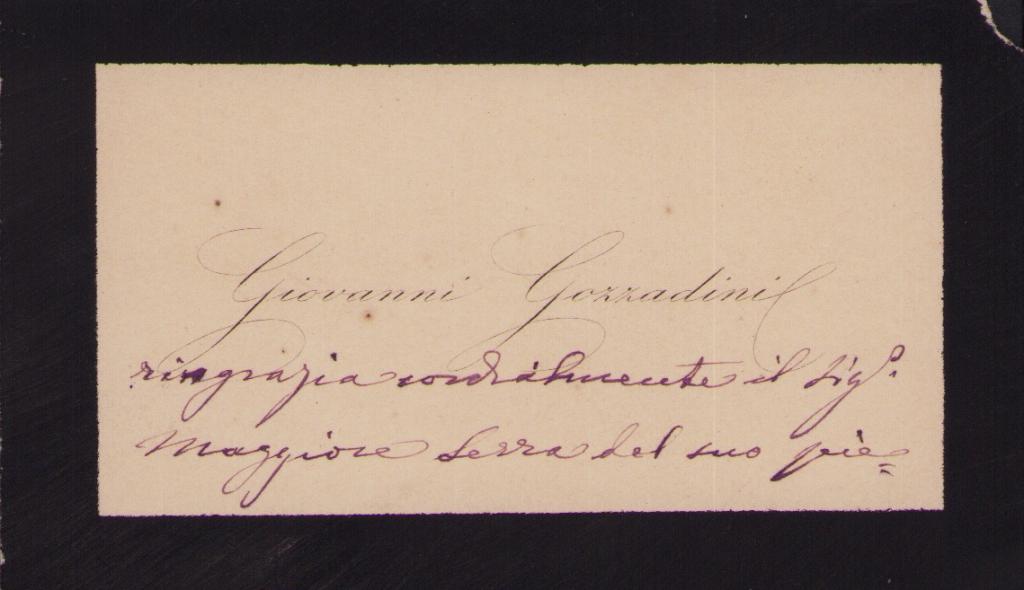 Giovanni Gozzadini
ringrazia cordialmente il Sigʳ.
Maggiore Serra del suo pie=